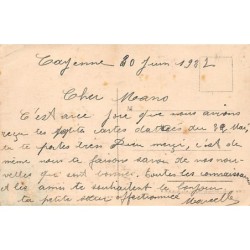 Cayenne 20 Juin 1902
Cher Mano
C'est avec joie que nous avons
reçu les petite cartes datées du 22 Mai,
tu te portes tres bien merci, c'est de
même nous te faisons savoir de nos nou-
velles qui sont bonnes. Toutes les connaissan-
et les amis te souhaitent le bonjour
ta petite sœur affectionnée Marcelle